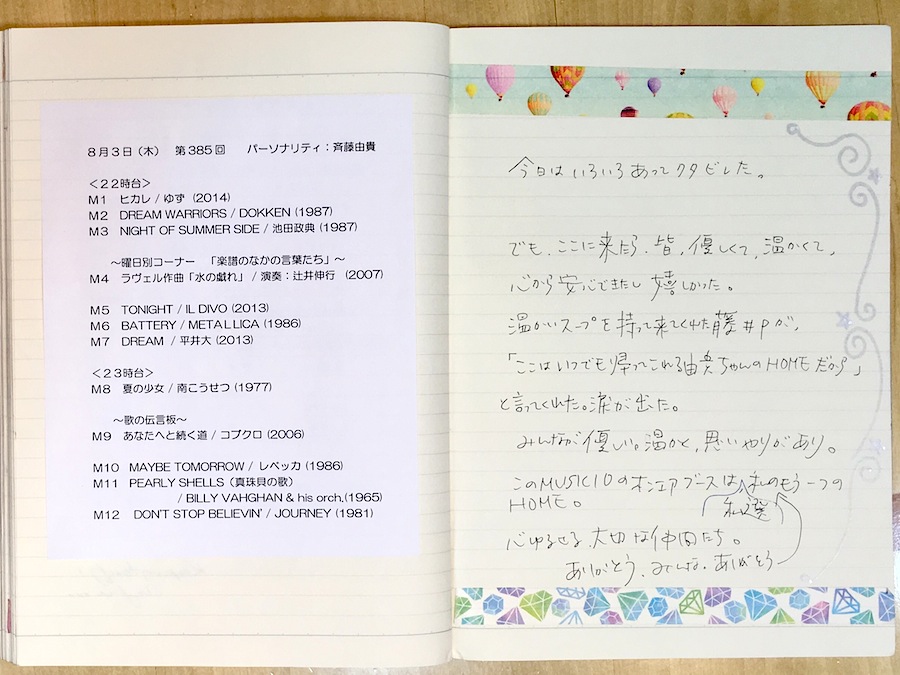 8月3日（木）　第385回　　パーソナリティ：斉藤由貴
＜22時台＞
M1　ヒカレ / ゆず (2014)
M2　DREAM WARRIORS / DOKKEN (1987)
M3　NIGHT OF SUMMER SIDE / 池田政典 (1987)
～曜日別コーナー　「楽譜のなかの言葉たち」～
M4　ラヴェル作曲「水の戯れ」 / 演奏：辻井伸行　(2007)
M5　TONIGHT / IL DIVO (2013)
M6　BATTERY / METALLICA (1986)
M7　DREAM / 平井大 (2013)
＜23時台＞
M8　夏の少女 / 南こうせつ (1977)
～歌の伝言板～
M9　あなたへと続く道 / コブクロ (2006)
M10　MAYBE TOMORROW / レベッカ (1986)
M11　PEARLY SHELLS（真珠貝の歌）
/ BILLY VAHGHAN & his orch.(1965)
M12　DON'T STOP BELIEVIN' / JOURNEY (1981)
今日はいろいろあってクタビレた。
でも、ここに来たら、皆、優しくて、温かくて、
心から安心できたし嬉しかった。
温かいスープを持って来てくれた藤井Pが、
「ここはいつでも帰ってこれる由貴ちゃんのHOMEだから」
と言ってくれた。涙が出た。
みんなが優しい。温かと、思いやりがあり。
このMUSIC10のオンエアブースは、私のもう一つの
HOME。
心ゆるせる、大切な仲間たち。
ありがとう、みんな、ありがとう